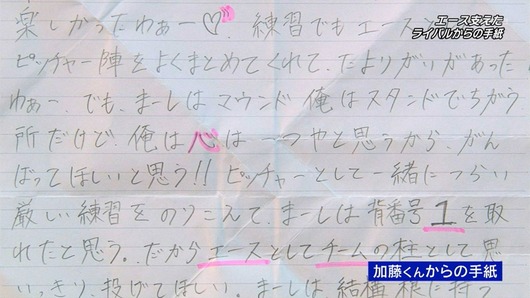 エース支えた
ライバルからの手紙
楽しかったわぁー♡ 練習でもエースと
ピッチャー陣をよくまとめてくれて、たよりがいがあった
わぁー、でも、まーしはマウンド俺はスタンドでちがう
所だけど、俺は心は一つやと思うから、がん
ばってほしいと思う!! ピッチャーとして一緒につらい
厳しい練習をのりこえて、まーしは背番号1を取
れたと思う。だからエースとしてチームの柱として思
いっきり、投げてほしい。まーしは、結構根に持つ
加藤くんからの手紙